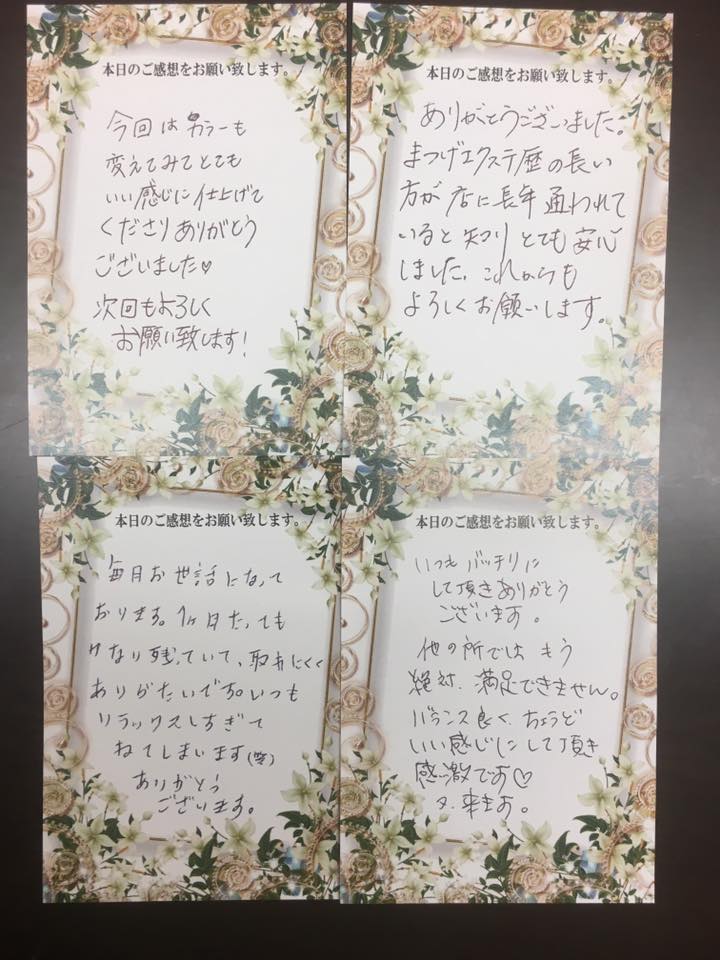 本日のご感想をお願い致します。
今回はカラーも
変えてみてとても
いい感じに仕上げて
くださりありがとう
ございました♡
次回もよろしく
お願い致します!
本日のご感想をお願い致します。
ありがとうございました。
まつげエクステ歴の長い
方が店に長年通われて
いると知りとても安心
しました。これからも
よろしくお願いします。
本日のご感想をお願い致します。
毎月お世話になって
おります。1ヶ月たっても
かなり残っていて、取れにくく
ありがたいです。いつも
リラックスしすぎて
ねてしまいます(笑)
ありがとう
ございます。
本日のご感想をお願い致します。
いつもバッチリに
して頂きありがとう
ございます。
他の所ではもう
絶対、満足できません。
バランス良く、ちょうど
いい感じにして頂き
感激です♡
又、来ます。